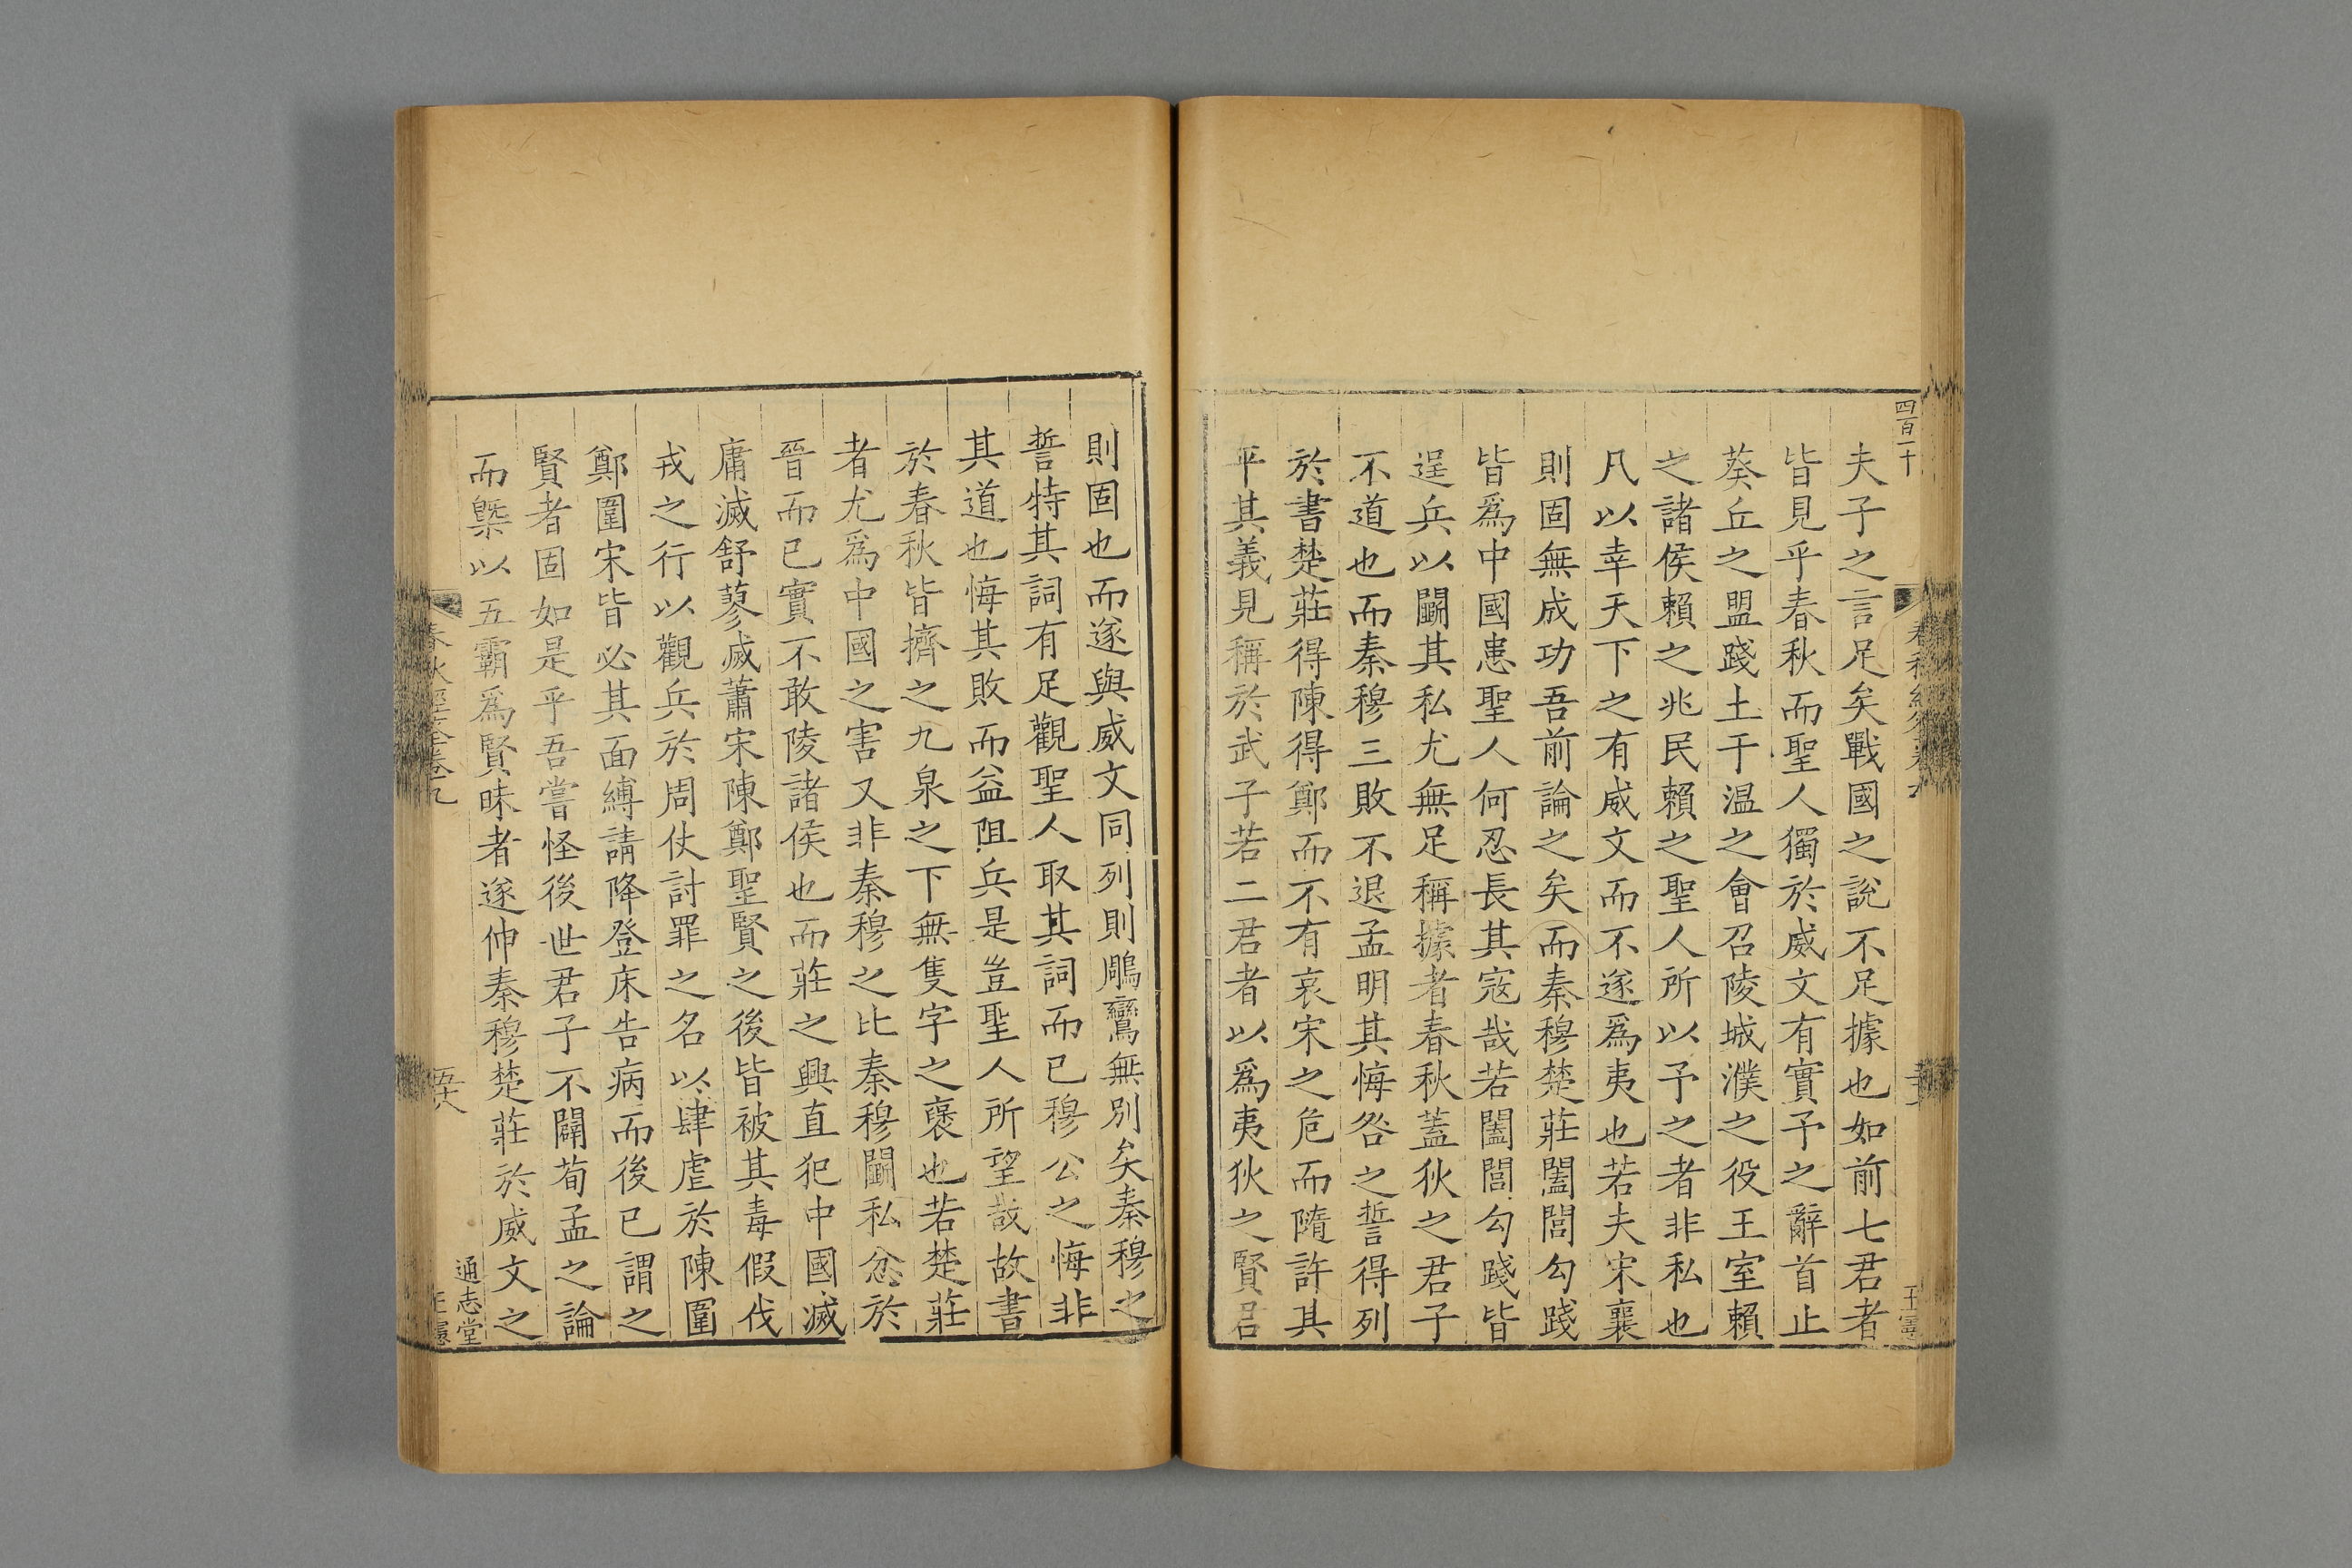 四百一十
夫子之言足矣戰國之說不足據也如前七君者
皆見乎春秋而聖人獨於威文有實予之辭首止
葵丘之盟踐土于温之會召陵城濮之役王室賴
之諸侯賴之兆民賴之聖人所以予之者非私也
凡以幸天下之有威文而不遂爲夷也若夫宋襄
則固無成功吾前論之矣而秦穆楚莊闔閭勾踐
皆爲中國患聖人何忍長其寇哉若闔閭勾踐皆
逞兵以鬭其私尤無足稱據者春秋蓋狄之君子
不道也而秦穆三敗不退孟明其悔咎之誓得列
於書楚莊得陳得鄭而不有哀宋之危而隋許其
平其義見稱於武子若二君者以爲夷狄之賢君
則固也而遂與威文同列則鵰鸞無別矣秦穆之
誓特其詞有足觀聖人取其詞而已穆公之悔非
其道也悔其敗而益阻兵是豈聖人所望哉故書
於春秋皆擠之九泉之下無隻字之褒也若楚莊
者尤爲中國之害又非秦穆之比秦穆鬭私忿於
晉而已實不敢陵諸侯也而莊之興直犯中國滅
庸滅舒蓼滅蕭宋陳鄭聖賢之後皆被其毒假伐
戎之行以觀兵於周仗討罪之名以肆虐於陳圍
鄭圍宋皆必其面縛請降登床告病而後已謂之
賢者固如是乎吾嘗怪後世君子不闢荀孟之論
而槩以五霸爲賢昧者遂伸秦穆楚莊於威文之
通志堂